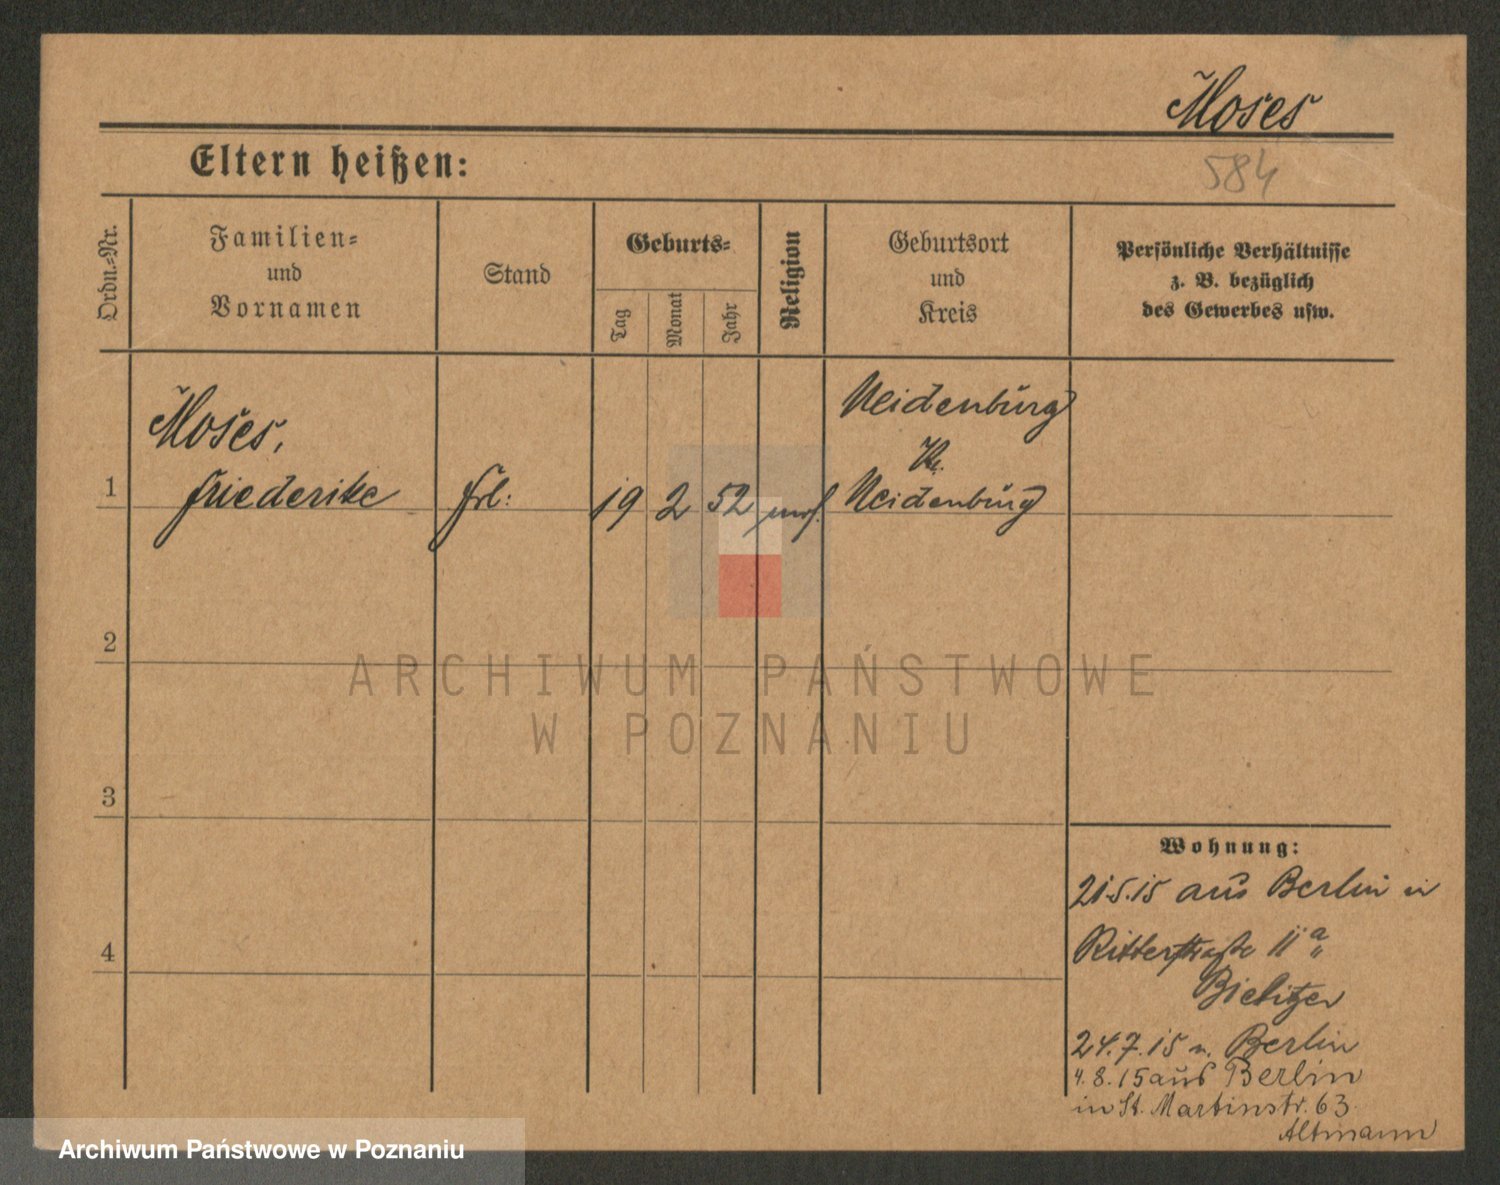 Moses
584
Eltern heißen:
Ordn.-Nr.
Familien-
und
Vornamen
Stand
Geburts-
Tag
Monat
Jahr
Religion
Geburtsort
und
Kreis
Persönliche Verhältnisse
z. B. bezüglich
des Gewerbes usw.
1
Moses,
Friederike
Frl:
19
2
52
mos.
Neidenburg
Kr.
Neidenburg
2
3
4
Wohnung:
21.5.15 aus Berlin in
Ritterstraße 11a
Bielitzer
24.7.15 n. Berlin
4.8.15 aus Berlin
in St. Martinstr. 63.
Altmann
ARCHIWUM PAŃSTWOWE
W POZNANIU
Archiwum Państwowe w Poznaniu